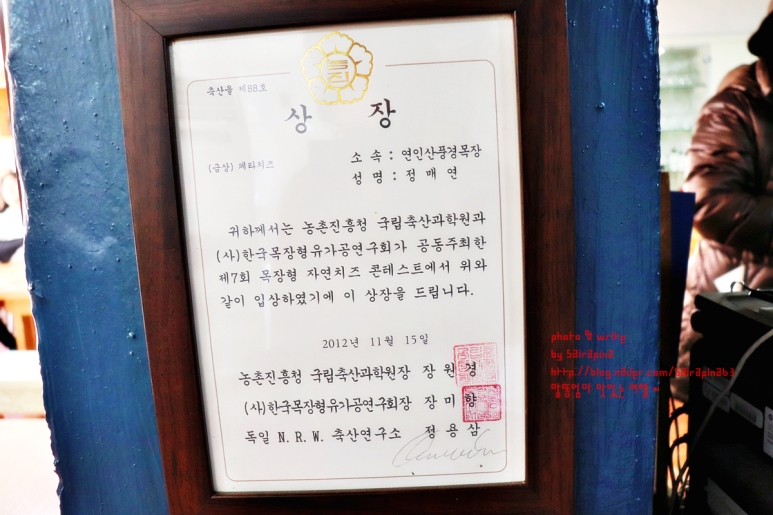 축산물 제88호
상 장
소 속 : 연인산풍경목장
(금상) 페타치즈
성 명 : 정 매 연
귀하께서는 농촌진흥청 국립축산과학원과
(사)한국목장형유가공연구회가 공동주최한
제7회 목장형 자연치즈 콘테스트에서 위와
같이 입상하였기에 이 상장을 드립니다.
2012년 11월 15일
농촌진흥청 국립축산과학원장 장 원 경
(사)한국목장형유가공연구회장 장 미 향
독일 N.R.W. 축산연구소 정 용 삼
by sairapina